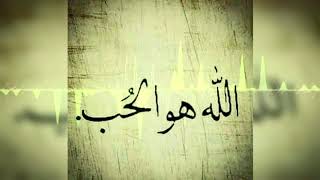 اللّٰه هو الحُب.